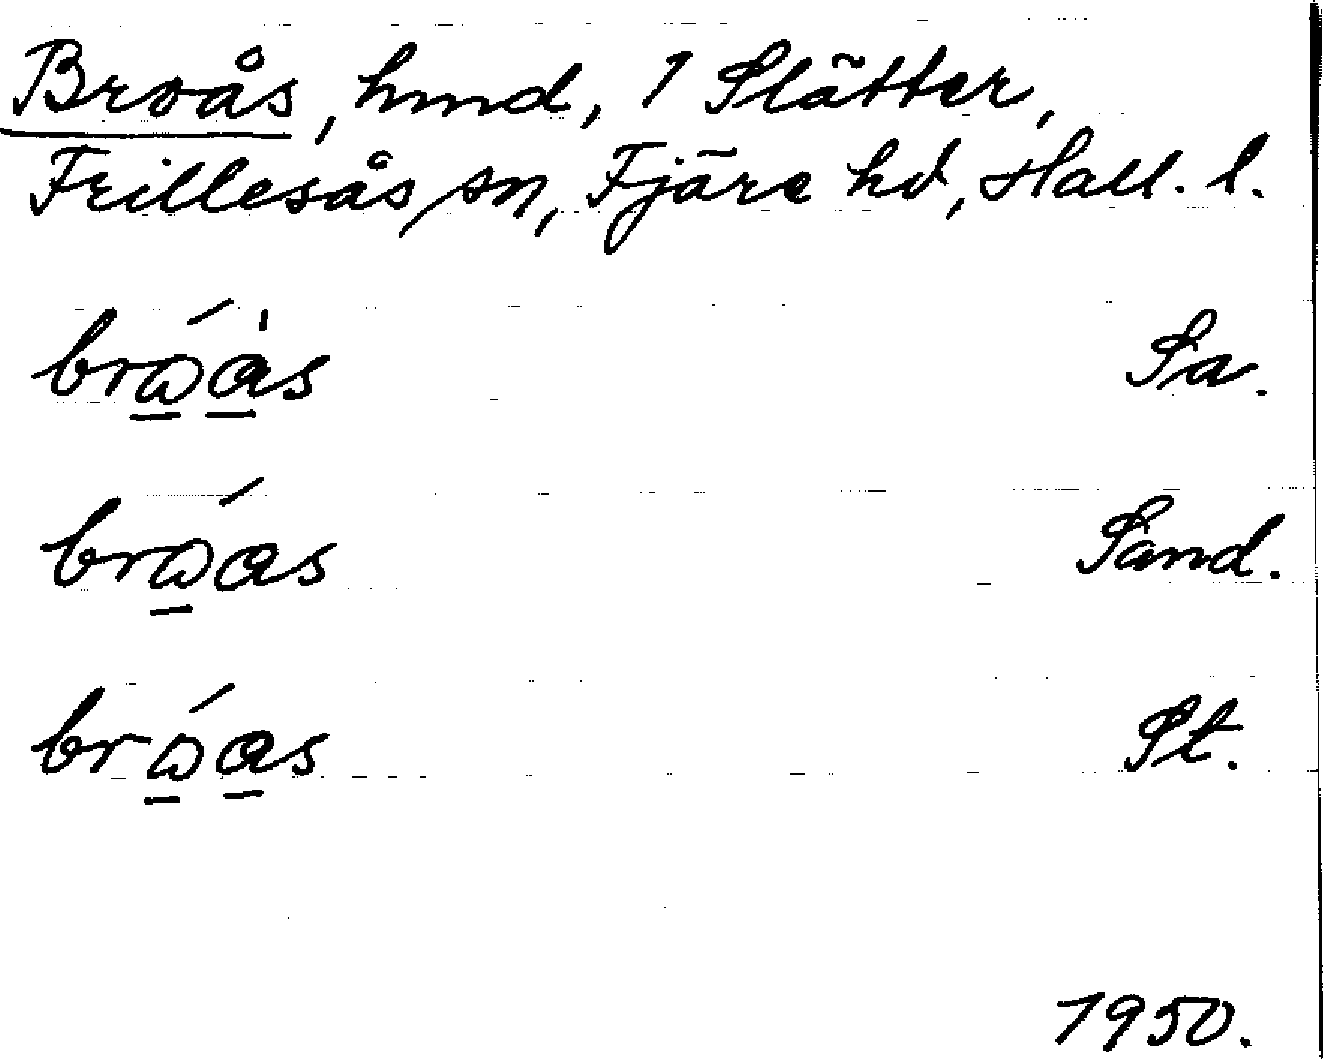 Broås, hmd, 1 Slätter,
Frillesås sn, Fjäre hd, Hall. l.
brώ̲a̲̍s Sa.
brώ̲as Sand.
brώ̲a̲s St.
1950.